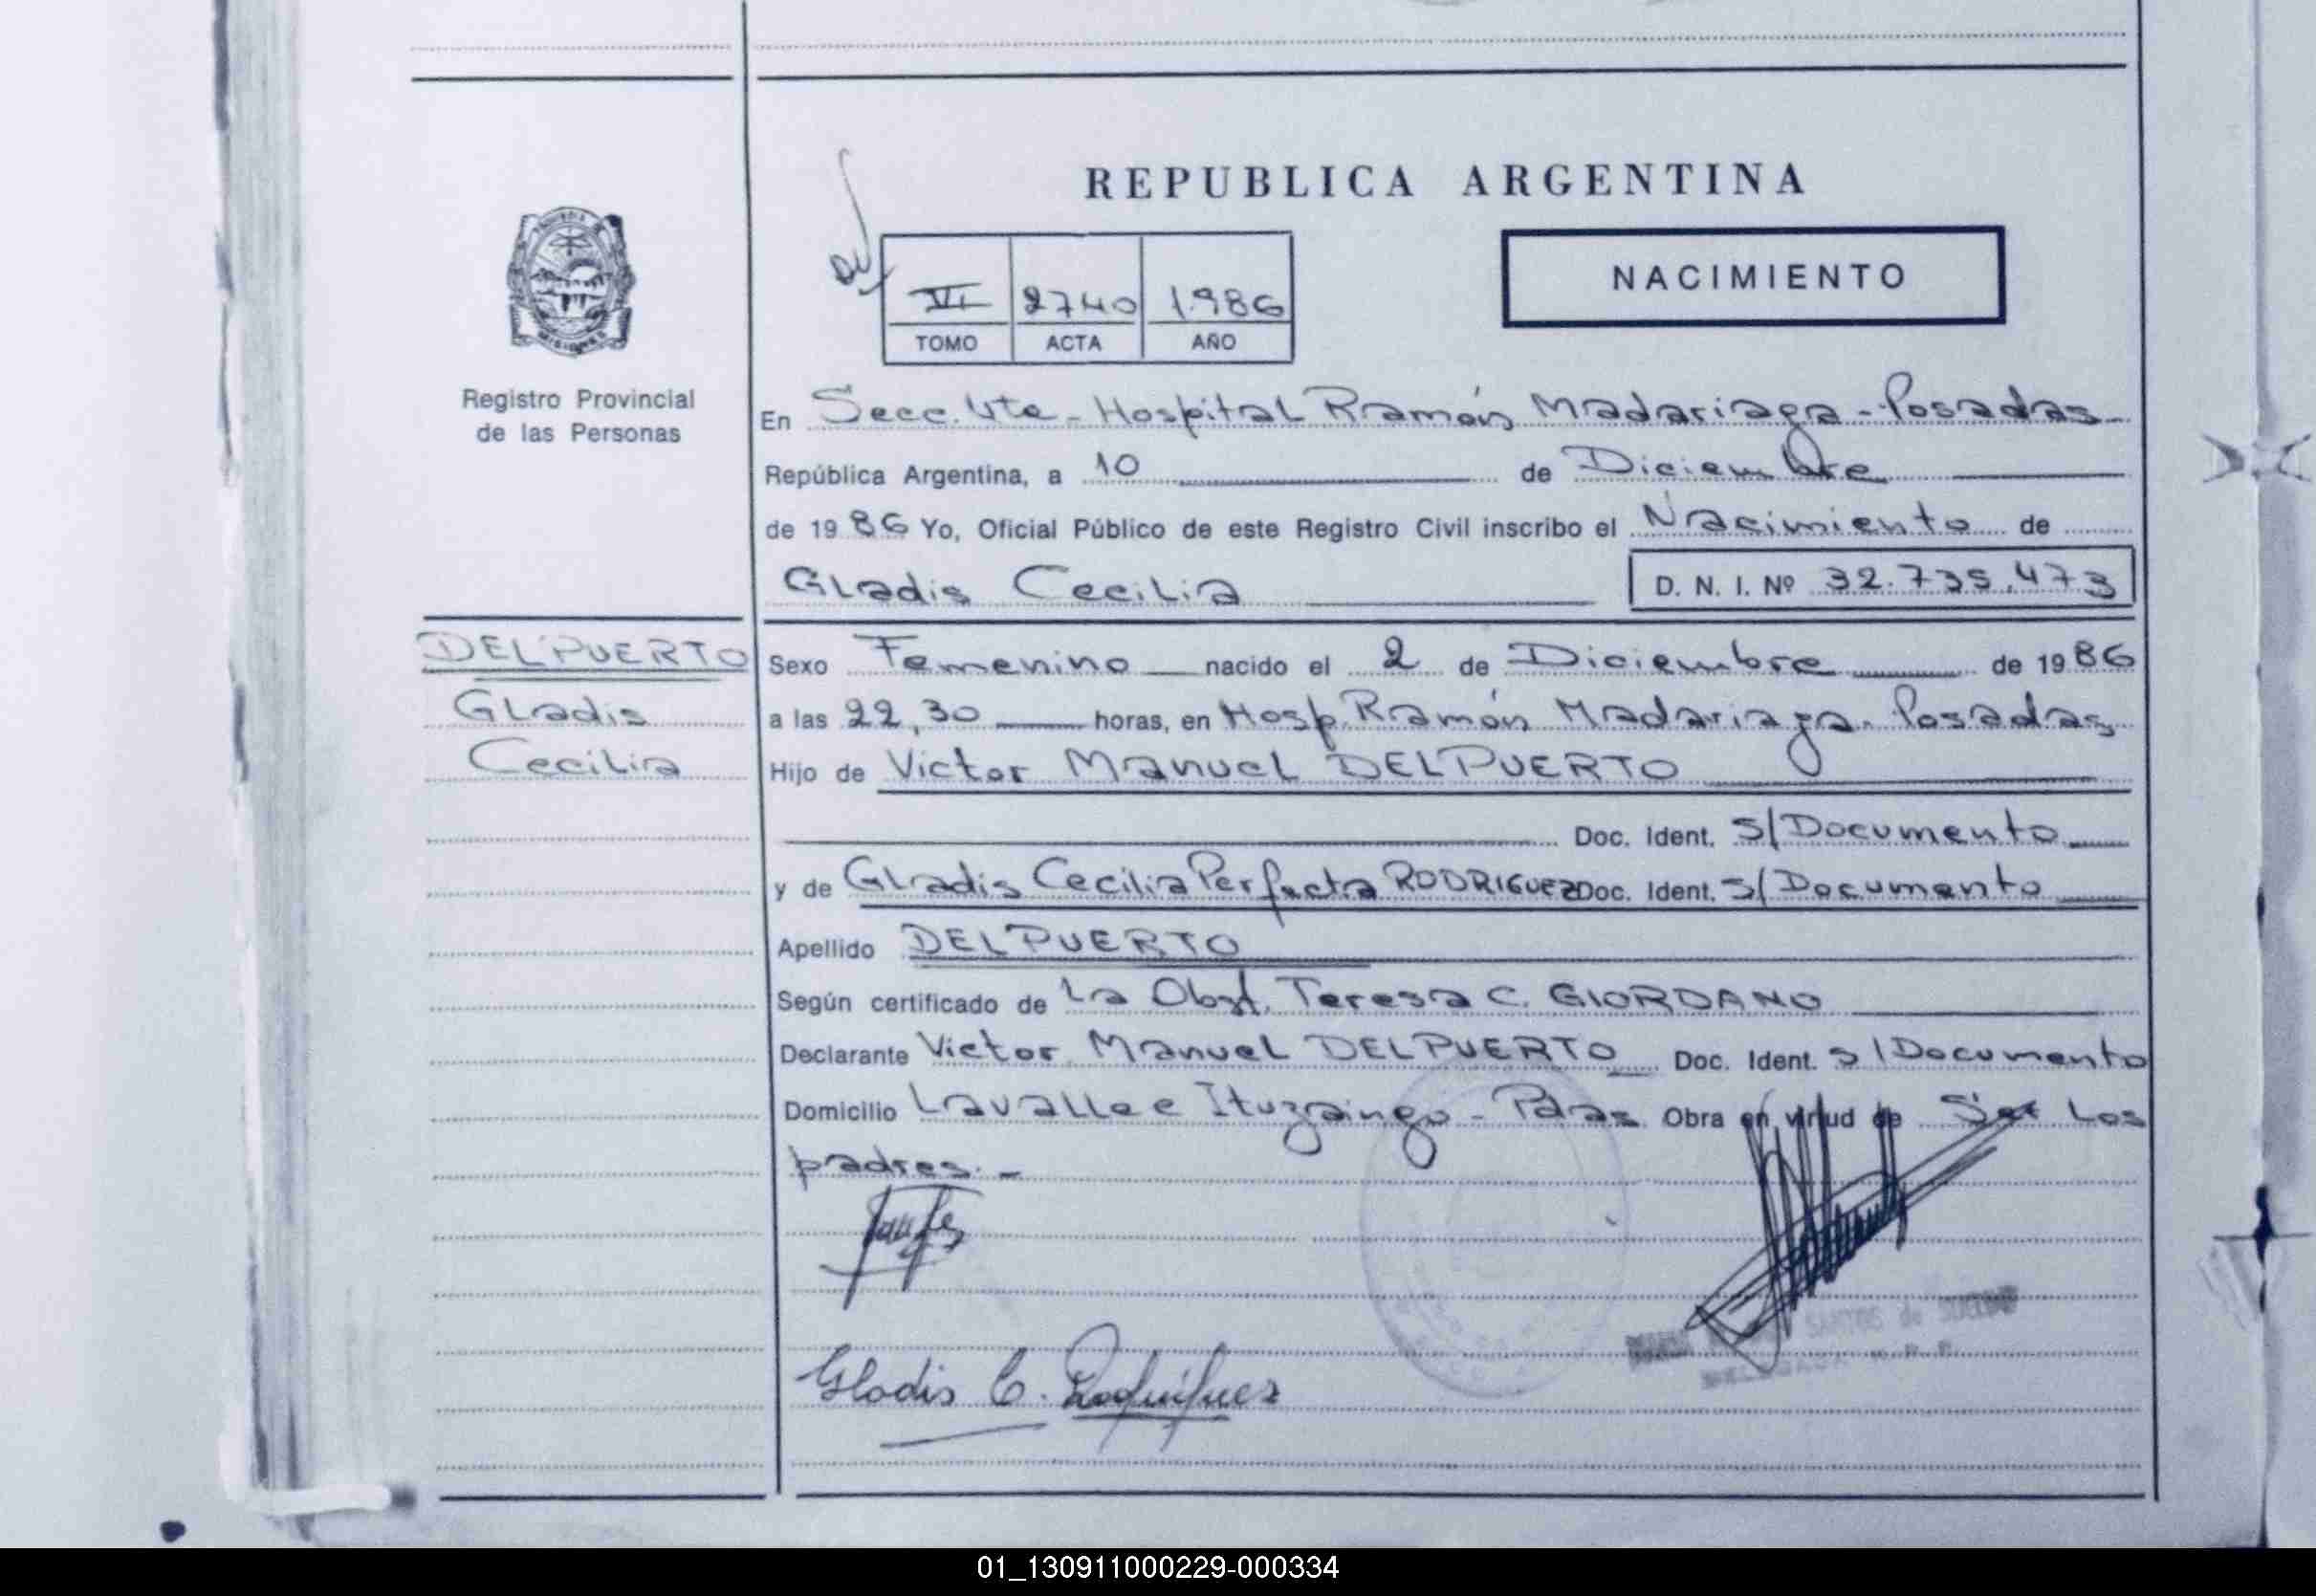 REPUBLICA ARGENTINA
NACIMIENTO
VI 2740 1.986
TOMO ACTA AÑO
Registro Provincial
de las Personas
En Secc. Vta - Hospital Ramón Madariaga - Posadas
República Argentina, a 10 de Diciembre
de 19 86 Yo, Oficial Público de este Registro Civil inscribo el Nacimiento de
Gladis Cecilia D. N. I. Nº 32.735.473
DELPUERTO
Gladis
Cecilia
Sexo Femenino nacido el 2 de Diciembre de 19 86
a las 22,30 horas, en Hosp. Ramón Madariaga. Posadas
Hijo de Victor Manuel DELPUERTO
Doc. Ident. S/Documento
y de Gladis Cecilia Perfecta RODRIGUEZ Doc. Ident. S/Documento
Apellido DELPUERTO
Según certificado de La Obst. Teresa C. GIORDANO
Declarante Victor Manuel DELPUERTO Doc. Ident. S/Documento
Domicilio Lavalle e Ituzaingo - Pdas Obra en virtud de Ser Los
padres. -
Gladis C. Rodriguez
SANTOS de
01_130911000229-000334